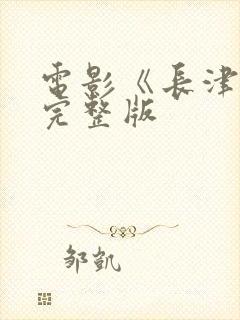 電影《長津
完整版
邹凱